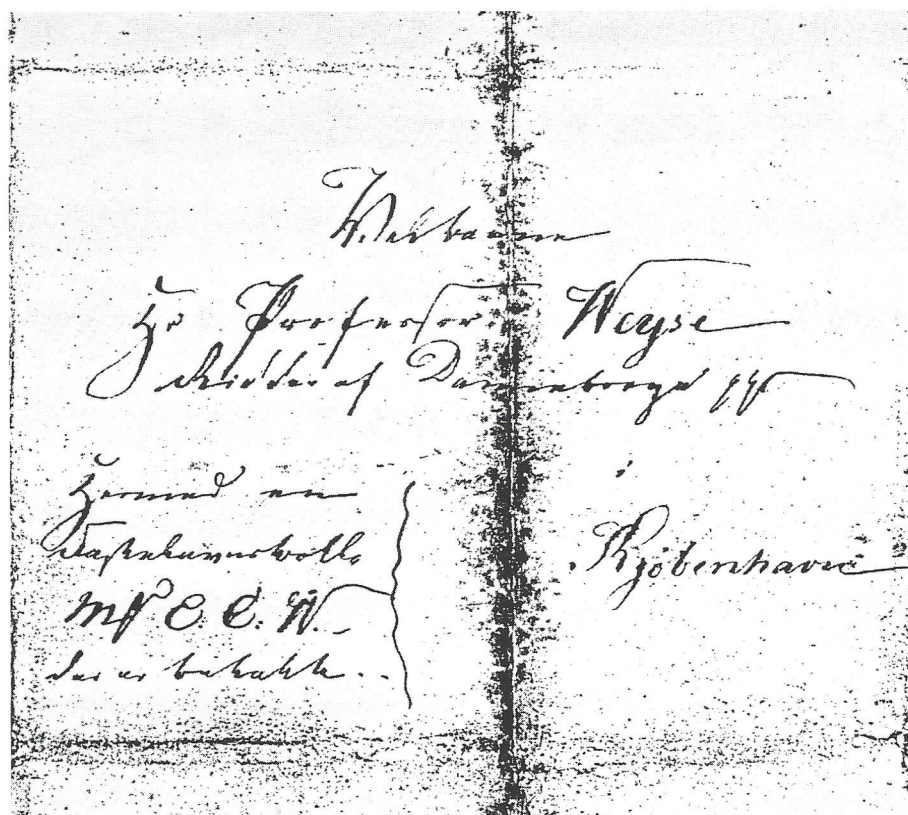 Velbaarne
Hr Professor Weyse
Ridder af Dannebroge pp
i
Kjöbenhavn
Hermed en
M/ C. E. W.
der er betahlt..